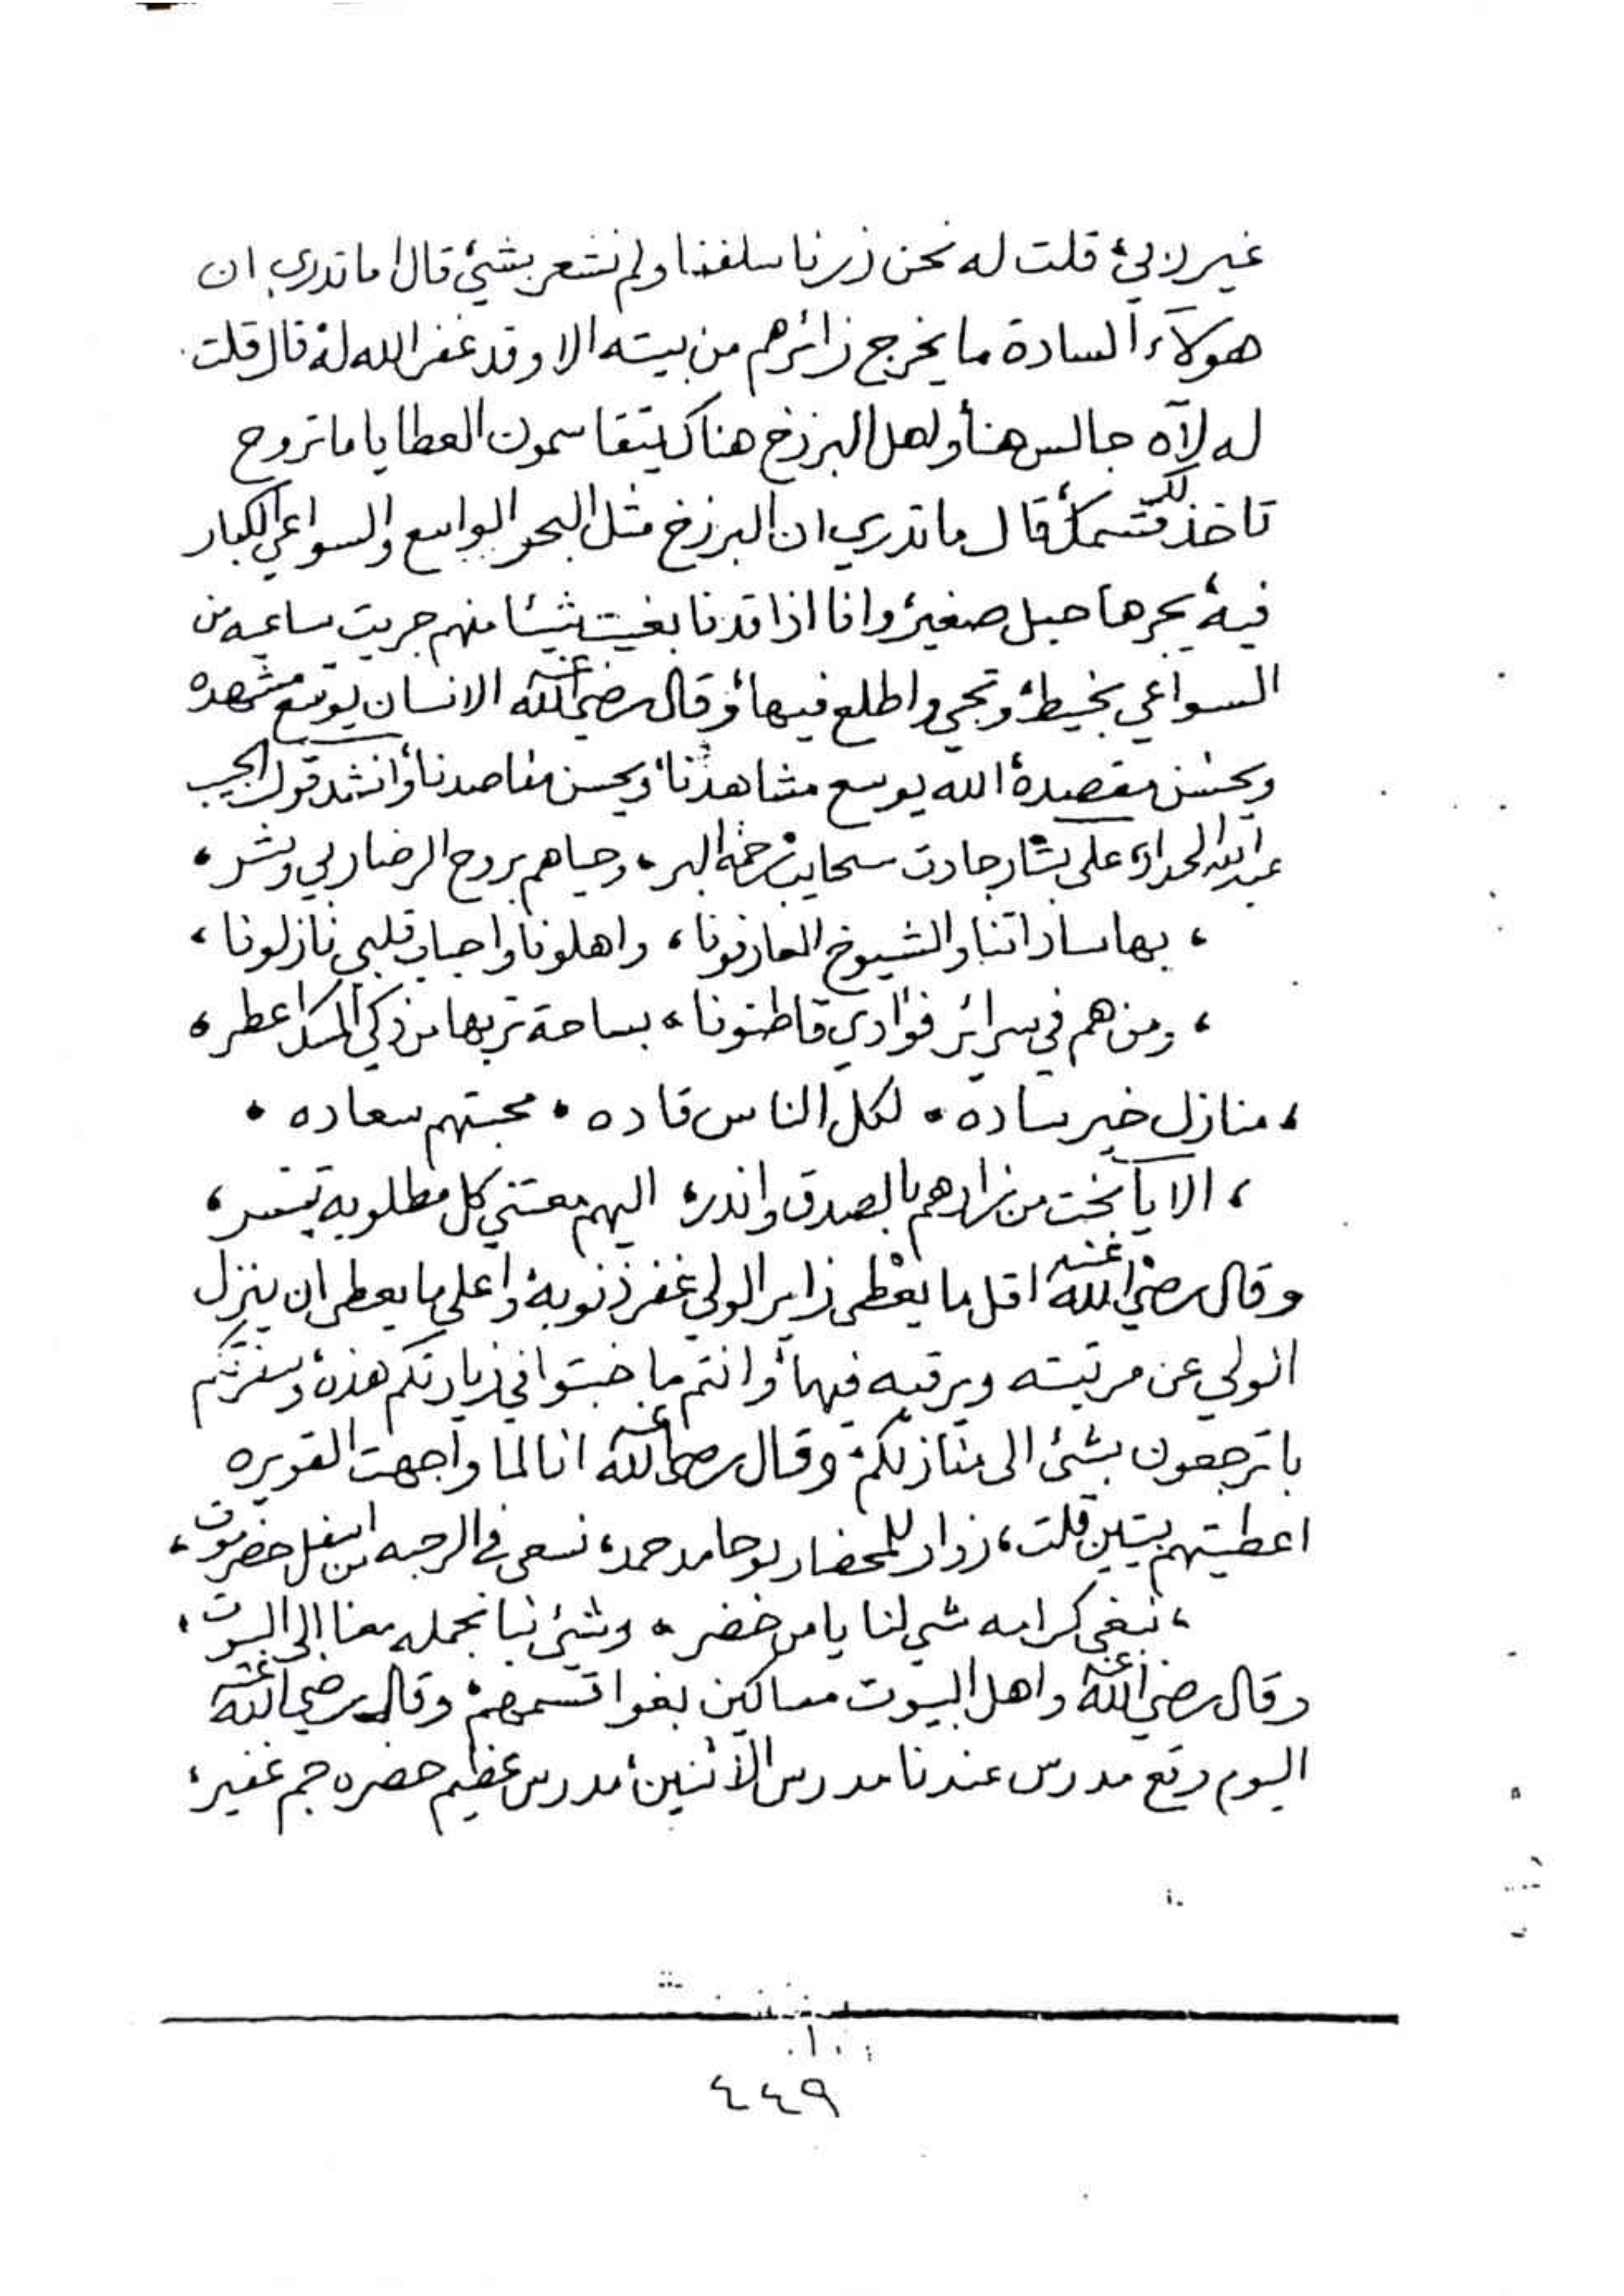 غير لابيء قلت له نحن زرنا سلفنا ولم نشعر بشيء قال اما تدري ان
هولاء السادة ما يخرج زائرهم من بيته الا وقد غفر الله له، قال قلت
له لآه جالس هنا، واهل البرزخ هناك يتقاسمون العطايا ما تروح
تاخذ لك قسمك، قال ما تدري ان البرزخ مثل البحر الواسع والسواعي الكبار
فيه، يجرها حبل صغير، وانا اذا قدنا بغيت شيئا منهم جريت ساعيه من
السواعي بخيط، وتجي واطلع فيها، وقال رضي الله عنه الانسان يوسع مشهده
ويحسن مقصده، الله يوسع مشاهدنا، ويحسن مقاصدنا، وانشد قول الحبيب
عبدالله الحداد، على بشار جادت سحايب رحمة البر، وحياهم بروح الرضا ربي وبشر،
، بها ساداتنا والشيوخ العارفونا، واهلونا واحباب قلبي نازلونا،
، ومن هم في سرائر فؤادي قاطنونا، بساحة تربها من ذكي المسك اعطر،
، منازل خير ساده، لكل الناس قاده، محبتهم سعاده،
، الا يا بخت من زارهم بالصدق واندر، اليهم معتني كل مطلوبه تيسر،
وقال رضي الله عنه اقل ما يعطى زاير الولي غفر ذنوبه، واعلى ما يعطى ان ينزل
الولي عن مرتبته ويرقيه فيها، وانتم ما خبتوا في زيارتكم هذه، وسفرتكم
با ترجعون بشئ الى منازلكم، وقال رضي الله عنه انا لما واجهت القويره
اعطيتهم بيتين قلت، زوار للمحضار بو حامد حمد، نسعى في الرحبه من اسفل حضرموت،
، نبغى كرامه شي لنا يا من حضر، وشئ نبا نحمله معنا الى البيوت،
وقال رضي الله عنه واهل البيوت مساكين بغوا قسمهم، وقال رضي الله عنه
اليوم وقع مدرس عندنا مدرس الاثنين، مدرس عظيم حضره جم غفير،
٤٤٩